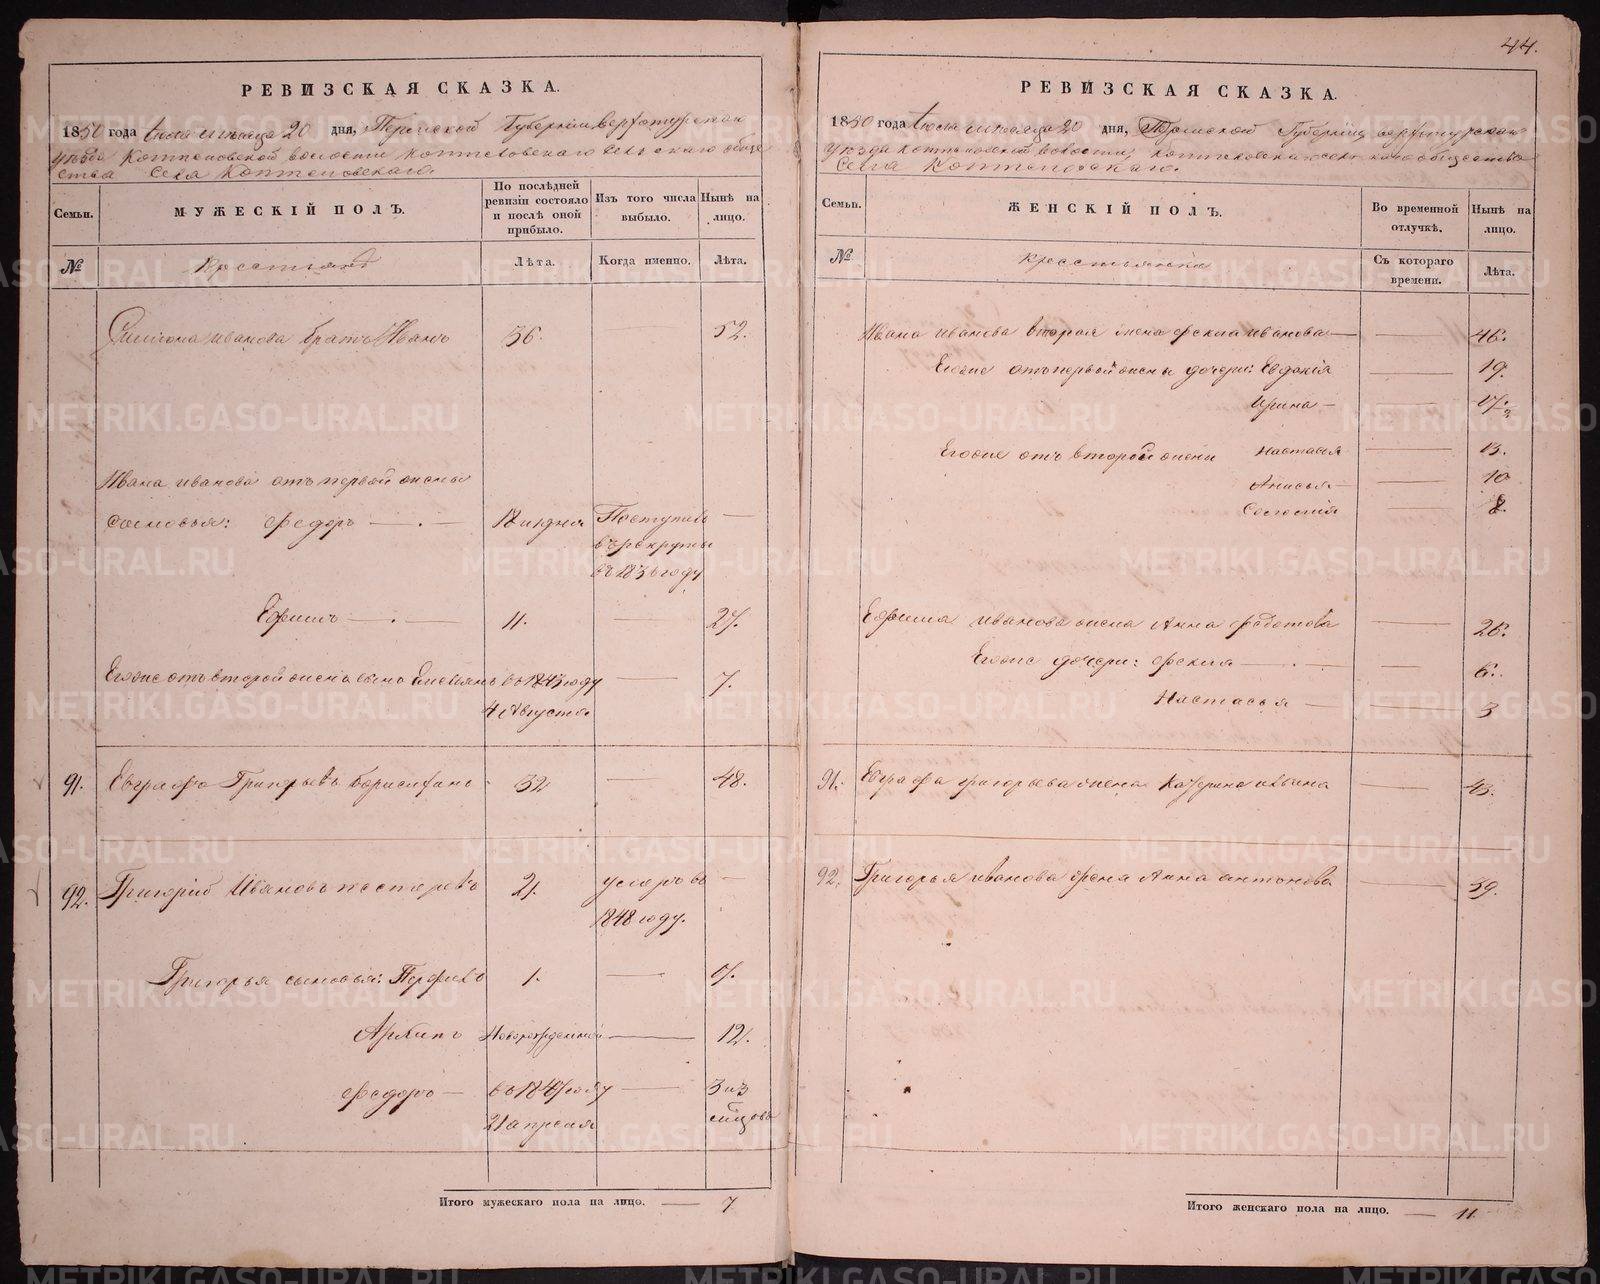 РЕВИЗСКАЯ СКАЗКА.
1850 года Июля месяца 20 дня, Пермской Губернии Верхотурскаго
уезда Коптеловской волости Коптеловскаго сельскаго обще
ства Села Коптеловскаго.
Семьи.
МУЖЕСКІЙ ПОЛЪ.
По послѣдней ревизіи состояло и послѣ оной прибыло.
Изъ того числа выбыло.
Нынѣ на лицо.
№
Крестьянъ
Лѣта.
Когда именно.
Лѣта.
иванова братъ Иванъ 36. — 52.
Ивана иванова отъ первой жены
сыновья: Федоръ — . — 18 Поступилъ —
въ рекруты
въ 183 году
Ефимъ — . — 11. — 27.
Егоже отъ второй жены сынъ въ 1843 году — 7.
4 Августа.
91. Евграфъ Григорьевъ 32 — 48.
92. Григорій Ивановъ 21. умеръ въ —
1848 году.
Григорья сыновья: Перфилъ 1. — 17.
Архипъ Новорожденной — 12.
Федоръ — въ 1847 году — 3 и 3
21 апреля месяцовъ
Итого мужескаго пола на лицо. — 7
44.
РЕВИЗСКАЯ СКАЗКА.
1850 года Июля месяца 20 дня, Пермской Губернии верхотурскаго
уезда Коптеловской волости, коптеловскаго сельскаго общества
Села Коптеловскаго.
Семьи.
ЖЕНСКІЙ ПОЛЪ.
Во временной отлучкѣ.
Нынѣ на лицо.
№
Крестьянска
Съ котораго времени.
Лѣта.
Ивана иванова вторая жена Фекла иванова — — 46.
Егоже отъ первой жены дочери: Евдокія — 19.
Ирина — — 17.
Егоже отъ второй жены Настасья — 13.
Анисья — — 10
— 8.
Ефима иванова жена Анна федотова — 26.
Егоже дочери: Фекла — . — — 6.
Настасья — — 3
91. Евграфа григорьева жена Катерина — 43.
92. Григорья иванова жена Анна антонова — 39.
Итого женскаго пола на лицо. — 11
METRIKI.GASO-URAL.RU